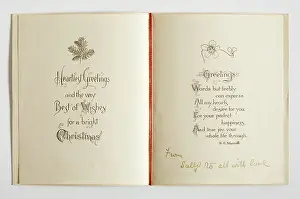 Heartiest Greetings
and the very
Best of Wishes
for a bright
Christmas!
Greetings
Words but feebly
can express
All my heart's
desire for you.
For your perfect
happiness,
And true joy your
whole life through.
From
all with love